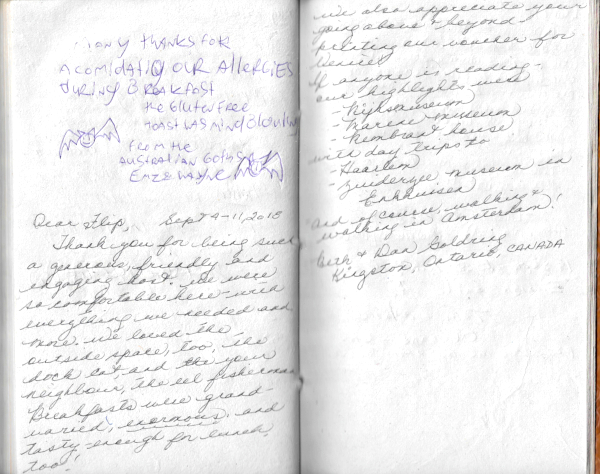 Many thanks for
Acomidatig our Allergies
during Breakfast
the Gluten free
toast was mind blowing
from the
Australian Goths
Emz & Wayne
Dear Flip, Sept 4-11, 2018
Thank you for being such
a generous, friendly and
engaging host. We were
so comfortable here - with
everything we needed and
more. We loved the
outside space, too, the
dock cat, and the your
neighbour, the eel fisherman
Breakfasts were grand -
varied, enormous, and
tasty - enough for lunch
too!
We also appreciate your
going above & beyond -
printing our voucher for
Venice!
If anyone is reading -
our highlights were
- Rijksmuseum
- Marine museum
- Rembrandt house
with day trips to:
- Haarlem
- Zuiderzee Museum in
Enkhuisen
And of course, walking &
walking in Amsterdam!
Beth & Dan Goldring
Kingston, Ontario, CANADA